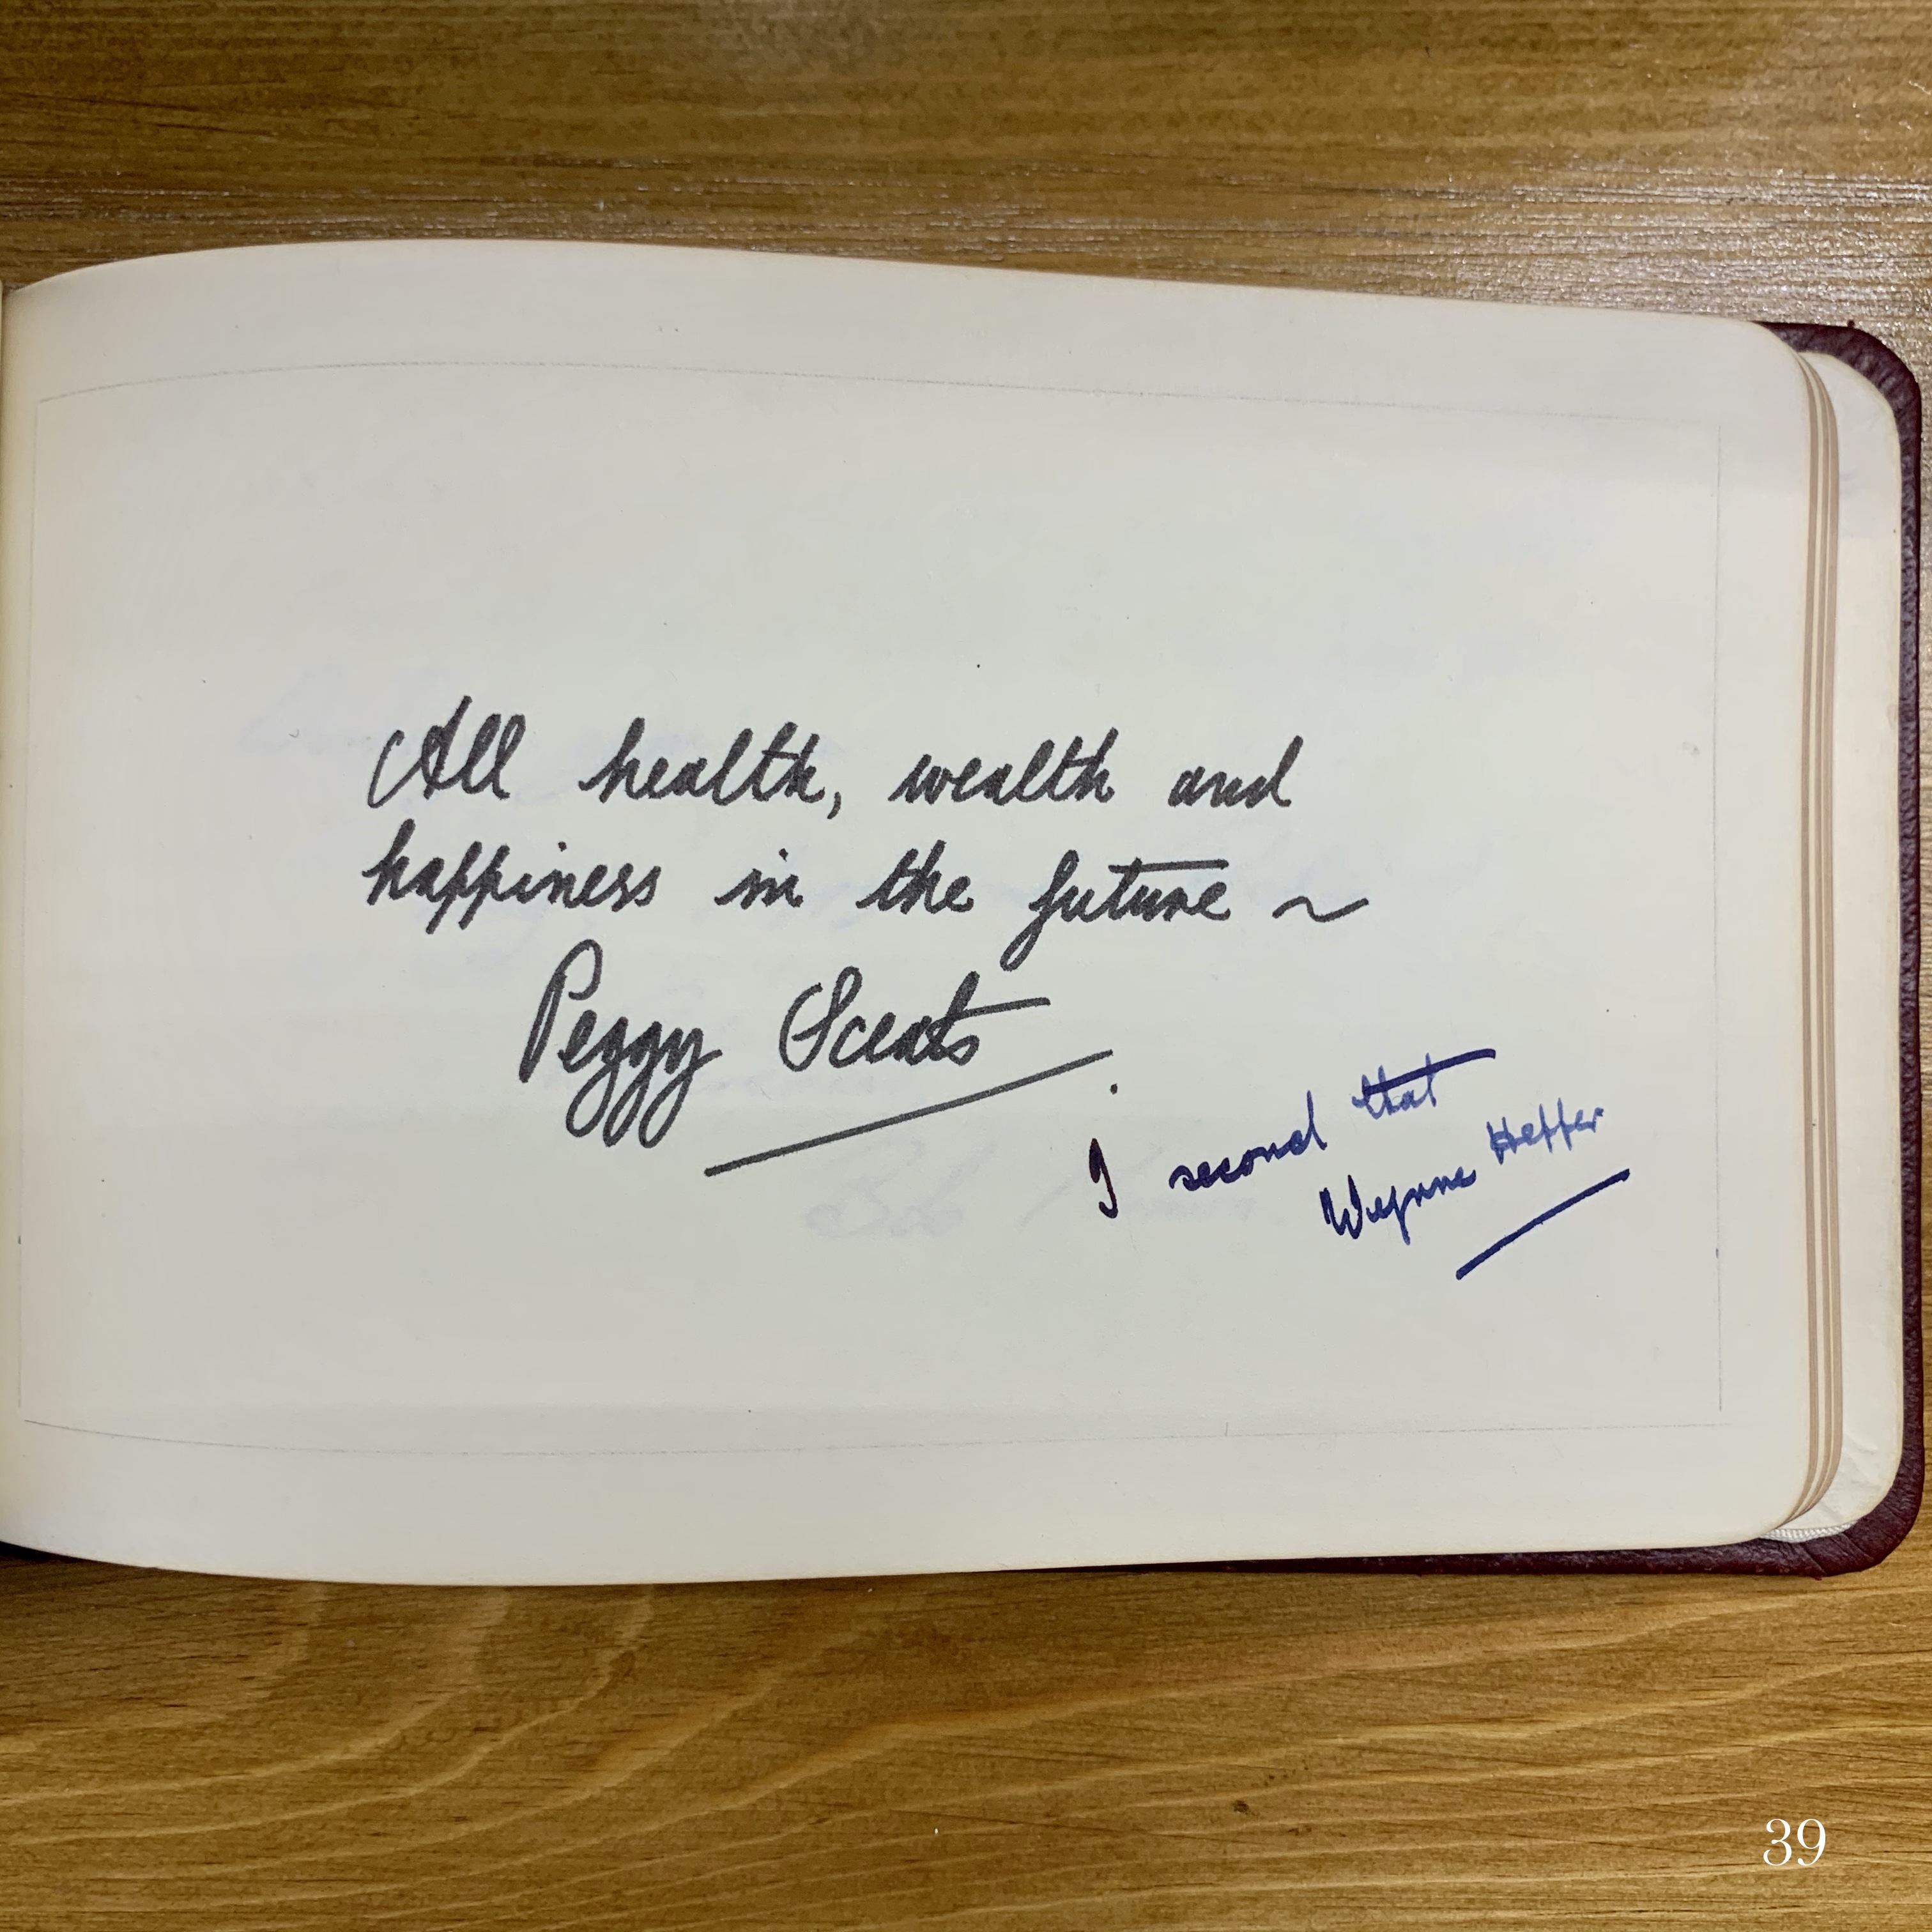 All health, wealth and
happiness in the future ~
Peggy Sceats
I second that
Wynne Heffer
39